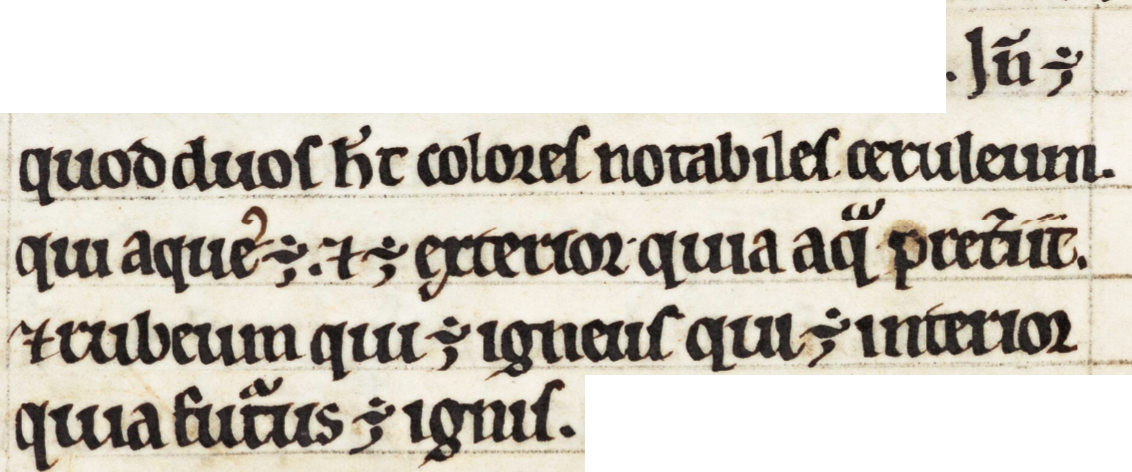 . Iñ ÷
quod duos ħt colores notabiles ceruleum.
qui aque᾽ ÷. ⁊ ÷ exterior quia aqͣ pret͛iit.
⁊ rubeum qui ÷ igneus qui ÷ interior
quia futͣus ÷ ignis.